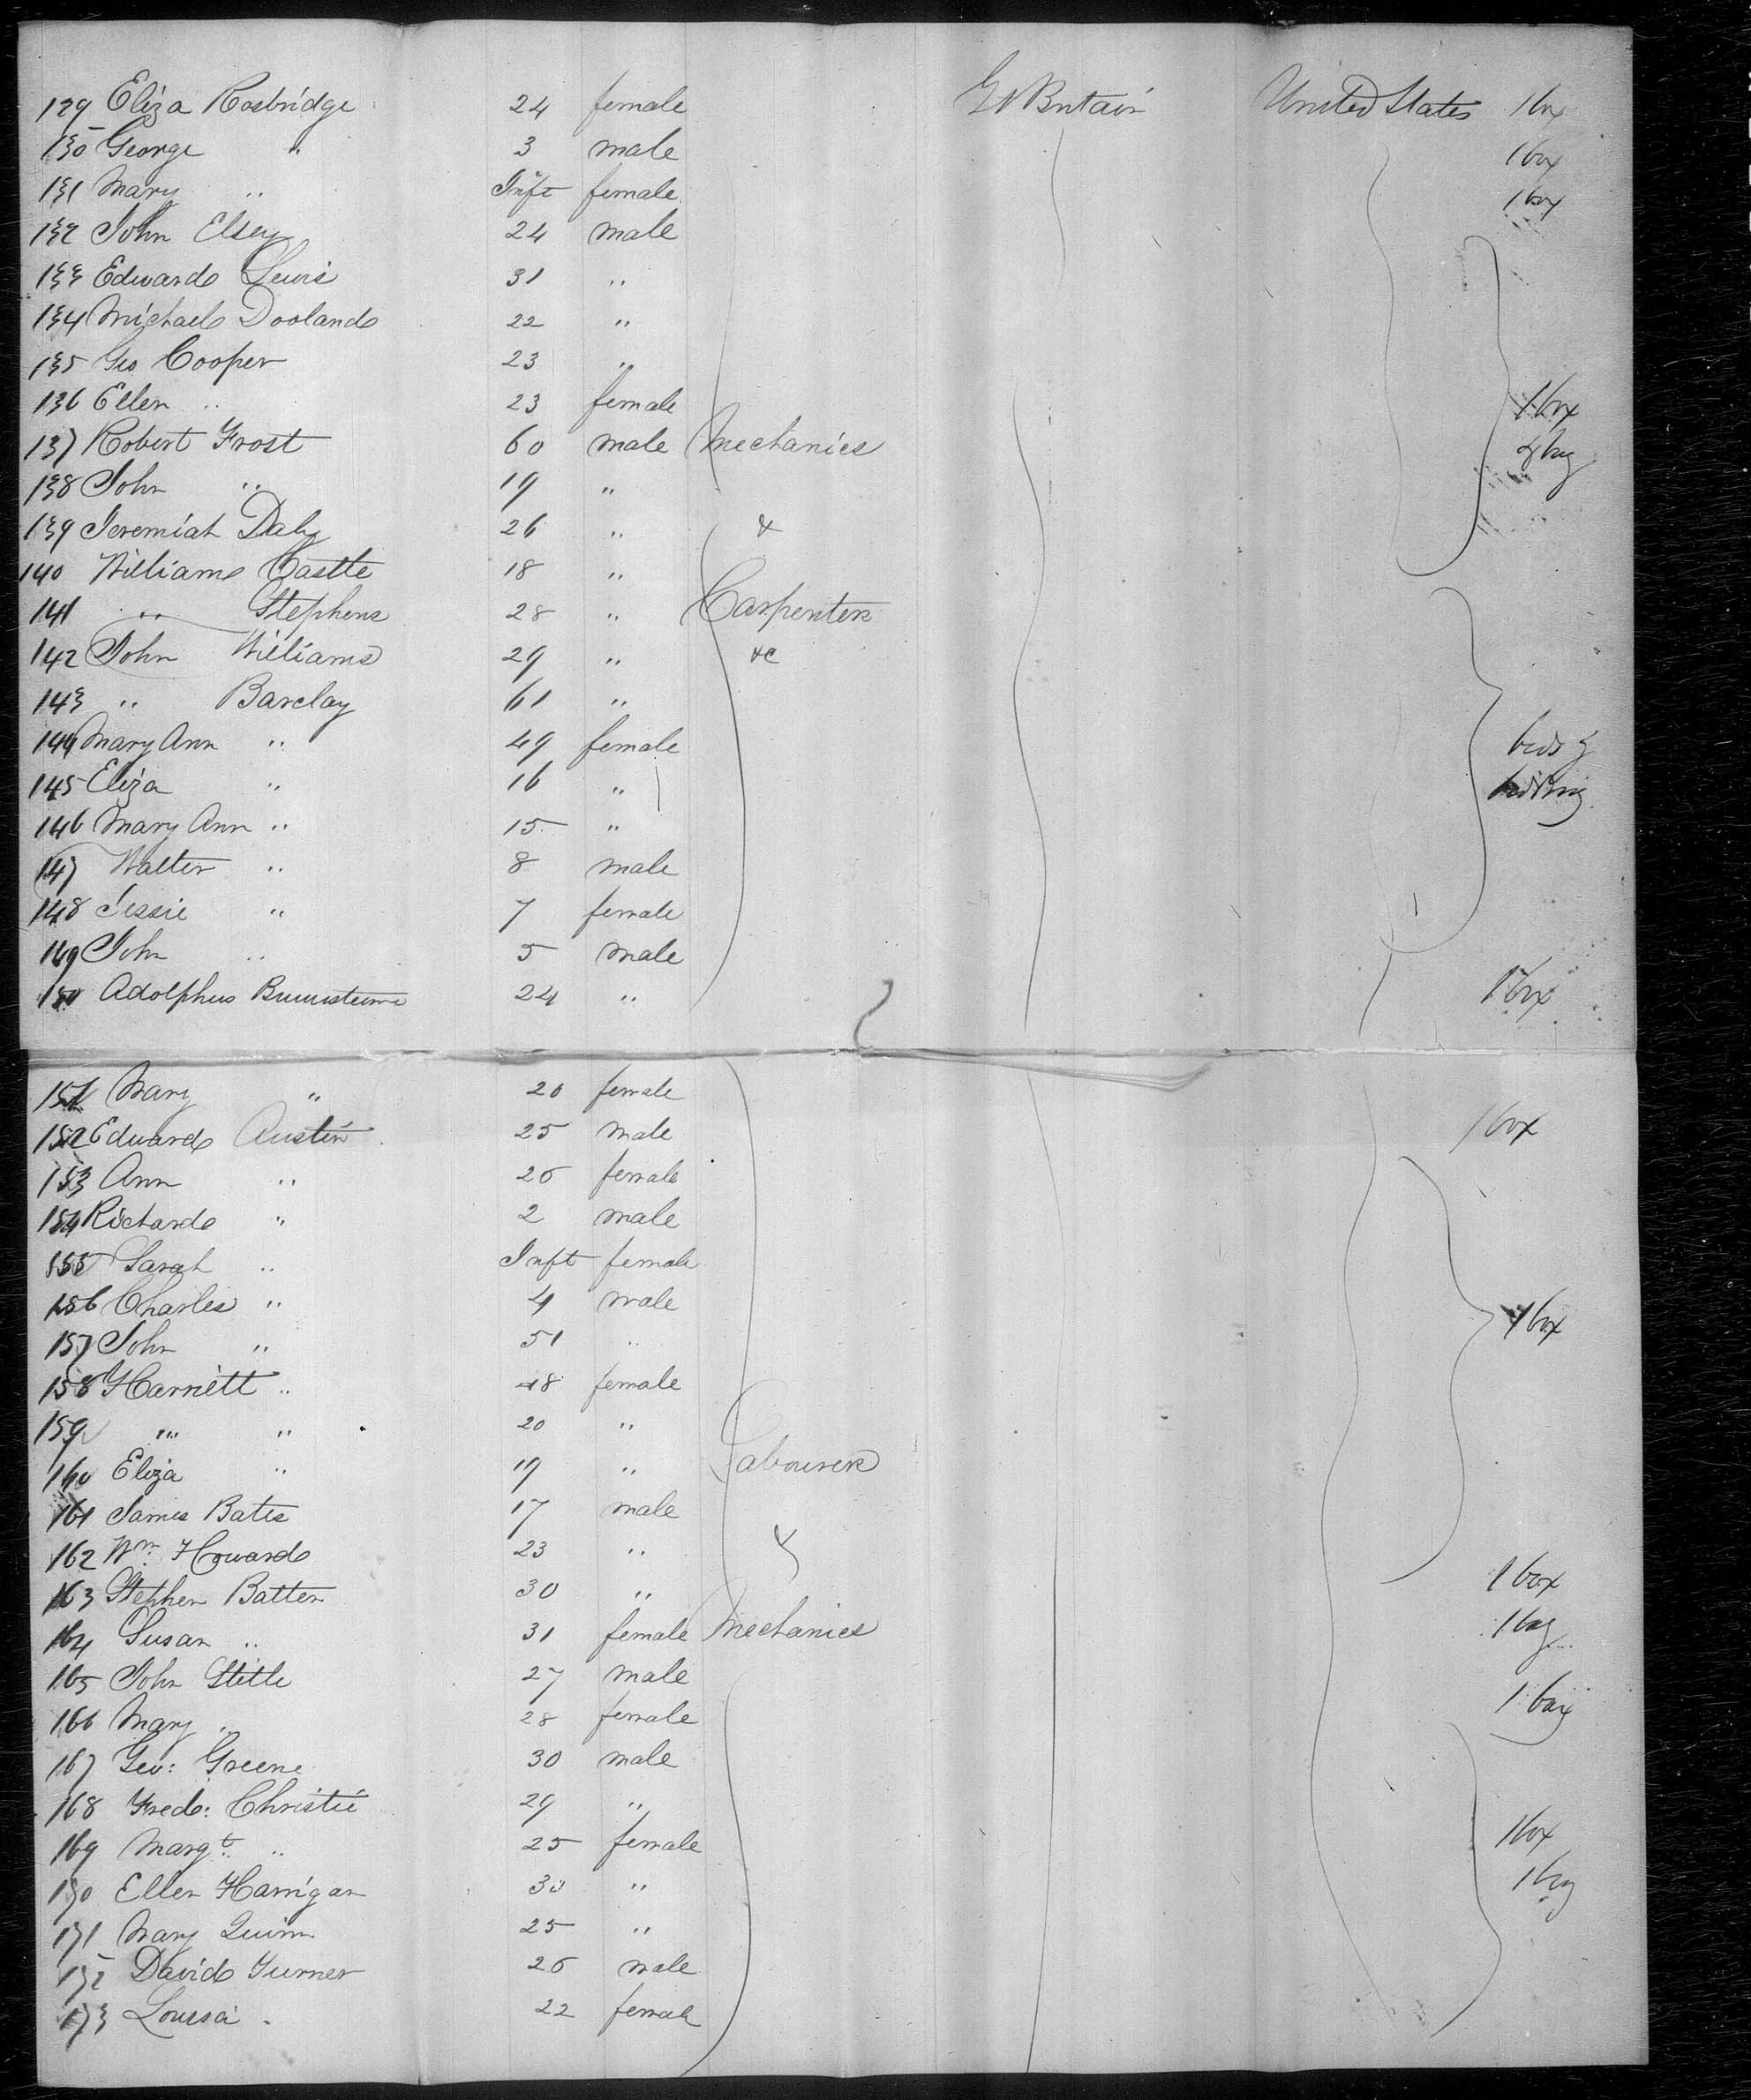 129 Eliza Rosbridge 24 female Gt Britain United States 1 box
130 George " 3 male 1 box
131 Mary " Inft female 1 box
132 John Elsey 24 male
133 Edward Lewis 31 "
134 Michael Dooland 22 "
135 Geo Cooper 23 "
136 Ellen " 23 female 1 box
137 Robert Frost 60 male Mechanics & bag
138 John " 19 "
139 Jeremiah Daly 26 " &
140 William Castle 18 "
141 " Stephens 28 " Carpenters
142 John Williams 29 " &c
143 " Barclay 61 "
144 Mary Ann " 49 female beds &
145 Eliza " 16 " bedding
146 Mary Ann " 15 "
147 Walter " 8 male
148 Jessie " 7 female
149 John " 5 male
150 Adolphus 24 " 1 box
151 Mary " 20 female
152 Edward Austin 25 male 1 box
153 Ann " 26 female
154 Richard " 2 male
155 Sarah " Inft female
156 Charles " 4 male 1 box
157 John " 51 "
158 Harriett " 48 female
159 " " 20 "
160 Eliza " 19 " Labourers
161 James Bates 17 male
162 Wm. Howard 23 " &
163 Stephen Batten 30 " 1 box
164 Susan " 31 female Mechanics 1 bag
165 John Stitle 27 male
166 Mary " 28 female 1 bag
167 Geo: Greene 30 male
168 Fred: Christie 29 "
169 Margt. " 25 female 1 box
170 Ellen Harrigan 30 " 1 bag
171 Mary Quinn 25 "
172 David Turner 26 male
173 Louisa " 22 female